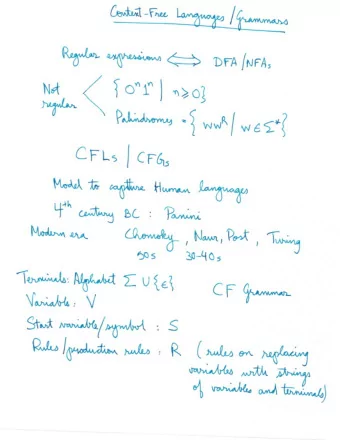 Context-Free Languages/Grammars
Regular expressions ⟺ DFA/NFAs
Not regular < { 0ⁿ1ⁿ | n≥0}
Palindromes = { wwᴿ | w∈Σ* }
CFLs / CFGs
Model to capture Human languages
4ᵗʰ century BC : Panini
Modern era Chomsky, Naur, Post, Turing
50s 30-40s
Terminals: Alphabet Σ ∪{ε} CF Grammar
Variable: V
Start variable/symbol : S
Rules/production rules : R (rules on replacing
variables with strings
of variables and terminals)